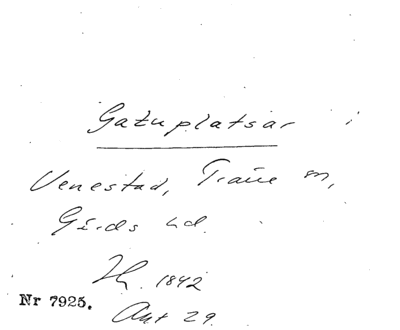 Gatuplatsar i
Venestad, Träne sn,
Gärds hd.
1842
Nr 7925.
Akt 29.